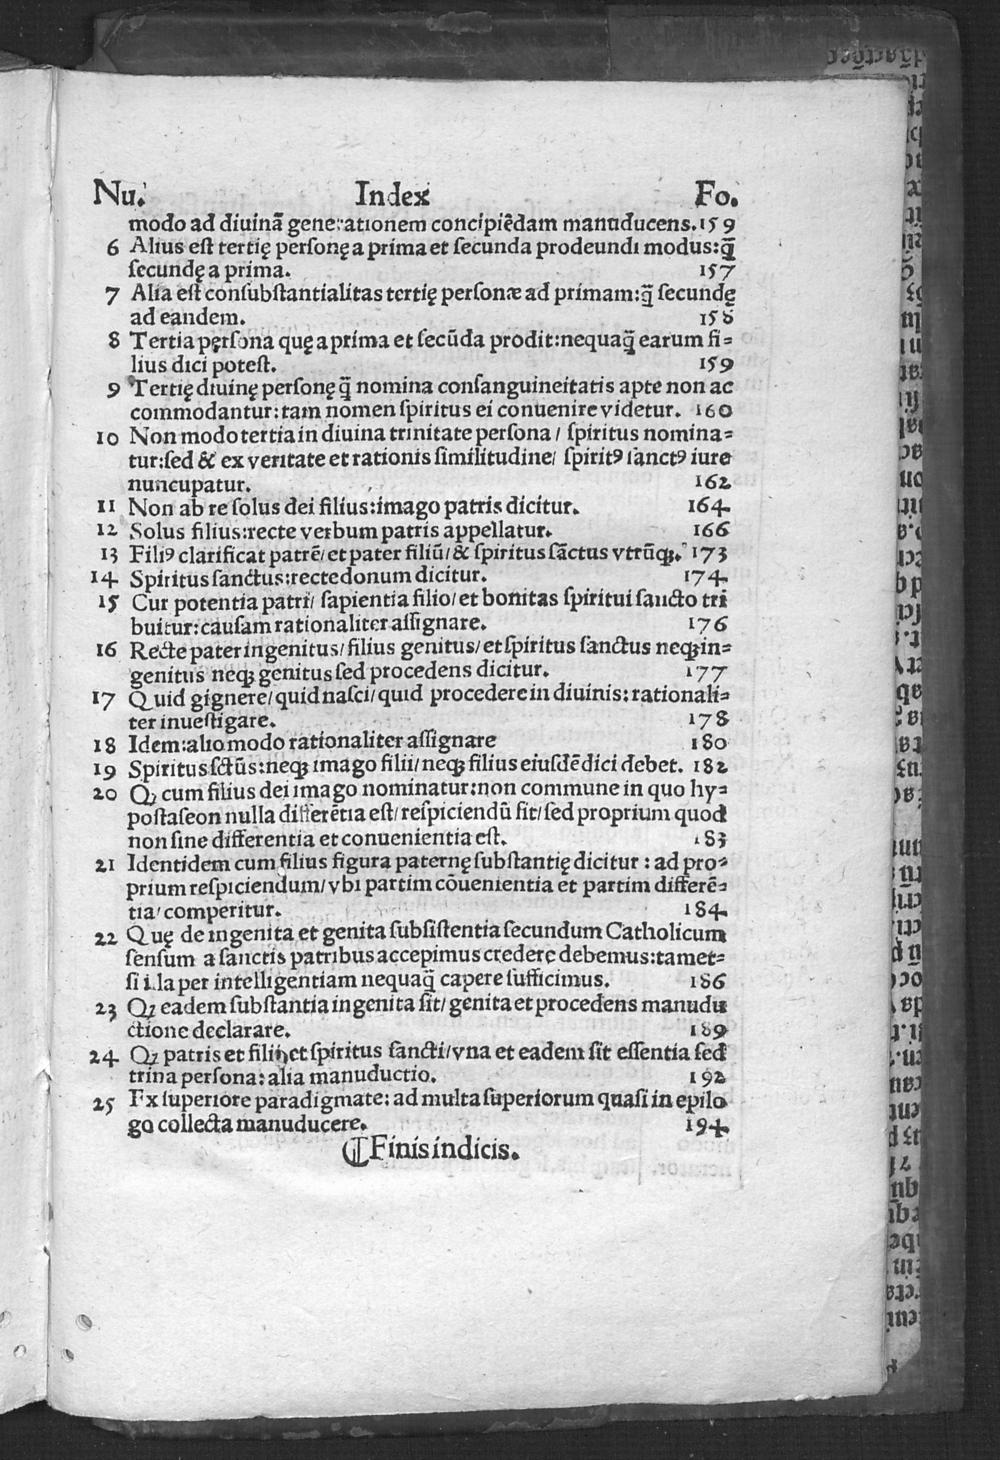 Nu. Index Fo.
modo ad diuinā generationem concipiēdam manuducens. 159
6 Alius est tertię personę a prima et secunda prodeundi modus: q̄
secundę a prima. 157
7 Alia est consubstantialitas tertię personæ ad primam: q̄ secundę
ad eandem. 158
8 Tertia persona quę a prima et secūda prodit: nequaq̄ earum fi=
lius dici potest. 159
9 Tertię diuinę personę q̄ nomina consanguineitatis apte non ac
commodantur: tam nomen spiritus ei conuenire videtur. 160
10 Non modo tertia in diuina trinitate persona / spiritus nomina=
tur: sed & ex veritate et rationis similitudine / spiritꝰ sanctꝰ iure
nuncupatur. 162
11 Non ab re solus dei filius: imago patris dicitur. 164
12 Solus filius: recte verbum patris appellatur. 166
13 Filiꝰ clarificat patrē / et pater filiū / & spiritus sāctus vtrūqꝫ. 173
14 Spiritus sanctus: recte donum dicitur. 174
15 Cur potentia patri / sapientia filio / et bonitas spiritui sancto tri
buitur: causam rationaliter assignare. 176
16 Recte pater ingenitus / filius genitus / et spiritus sanctus neqꝫ in=
genitus neqꝫ genitus sed procedens dicitur. 177
17 Quid gignere / quid nasci / quid procedere in diuinis: rationali=
ter inuestigare. 178
18 Idem: alio modo rationaliter assignare 180
19 Spiritus sctūs: neqꝫ imago filii / neqꝫ filius eiusdē dici debet. 182
20 Qꝫ cum filius dei imago nominatur: non commune in quo hy=
postaseon nulla differētia est / respiciendū sit / sed proprium quod
non sine differentia et conuenientia est. 183
21 Identidem cum filius figura paternę substantię dicitur : ad pro=
prium respiciendum / vbi partim cōuenientia et partim differē=
tia / comperitur. 184
22 Quę de ingenita et genita subsistentia secundum Catholicum
sensum a sanctis patribus accepimus credere debemus: tamet=
si illa per intelligentiam nequaq̄ capere sufficimus. 186
23 Qꝫ eadem substantia ingenita sit / genita et procedens manudu
ctione declarare. 189
24 Qꝫ patris et filii et spiritus sancti / vna et eadem sit essentia sed
trina persona: alia manuductio. 192
25 Ex superiore paradigmate: ad multa superiorum quasi in epilo
go collecta manuducere. 194
⁋ Finis indicis.